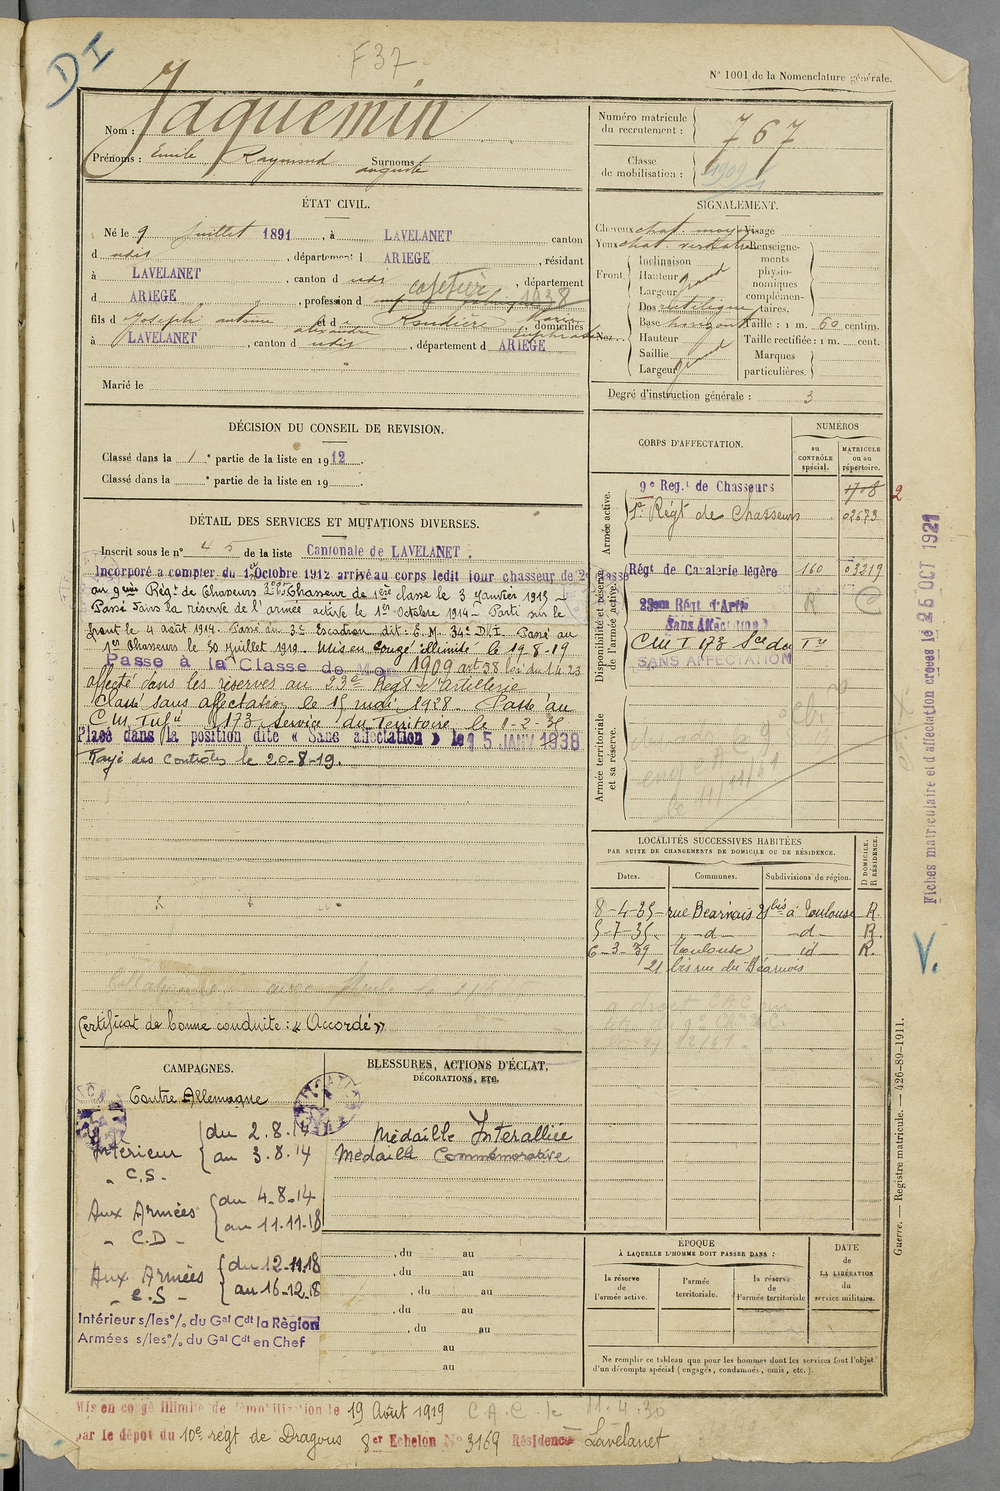 DI
F37
N° 1001 de la Nomenclature générale.
Nom : Jaquemin
Prénoms : Emile Raymond Surnoms
auguste
Numéro matricule du recrutement : 767
Classe de mobilisation : 1909
ÉTAT CIVIL.
Né le 9 Juillet 1891, à LAVELANET canton
d udis, département d ARIEGE, résidant
à LAVELANET, canton d udis, département
cafetier
d ARIEGE, profession d 1938
fils d Joseph antoine et de Roudière Marie domiciliés
alexandre
à LAVELANET, canton d udis, département d ARIEGE
Marié le
SIGNALEMENT.
Cheveux chat. moyen
Yeux chat. verdatre
Front. Inclinaison
Hauteur grand
Largeur
Nez. Dos rectiligne
Base horizont
Hauteur
Saillie grand
Largeur
Visage
Renseignements physionomiques complémentaires.
Taille : 1 m. 60 centim.
Taille rectifiée : 1 m. cent.
Marques particulières.
Degré d'instruction générale : 3
DÉCISION DU CONSEIL DE REVISION.
Classé dans la 1e partie de la liste en 1912.
Classé dans la e partie de la liste en 19
DÉTAIL DES SERVICES ET MUTATIONS DIVERSES.
Inscrit sous le n° 45 de la liste Cantonale de LAVELANET.
Incorporé a compter du 1er Octobre 1912 arrivé au corps ledit jour chasseur de 2e classe
au 9eme Régt de Chasseurs Chasseur de 1ère classe le 3 Janvier 1915 —
Passé dans la réserve de l'armée active le 1er Octobre 1914 — Parti sur le
front le 4 août 1914. Passé au 3e Escadron dit. E.M. 34e D.I. Passé au
1er Chasseurs le 30 Juillet 1919. Mis en congé illimité le 19-8-19
Passe à la Classe de Mon 1909 art 58 loi du 1.4.23
affecté dans les réserves au 23e Regt d'Artillerie
Classé sans affectation le 15 mai 1928. Passé au
C.M. Infie 173 Service du Territoire le 1-2-35
Placé dans la position dite « Sans affectation » le 15 JANV 1938
Rayé des Contrôles le 20-8-19.
Certificat de bonne conduite : « Accordé »
CORPS D'AFFECTATION.
NUMÉROS
au CONTRÔLE spécial.
MATRICULE ou au répertoire.
Armée active.
9e Reg.t de Chasseurs 1708 2
1er Régt de Chasseurs 02673
Disponibilité et réserve de l'armée active.
Régt de Cavalerie légère 160 03219
23eme Régt d'Artie
(Sans Affectation)
C M I 173 Sce du Tre
SANS AFFECTATION
Armée territoriale et sa réserve.
LOCALITÉS SUCCESSIVES HABITÉES
PAR SUITE DE CHANGEMENTS DE DOMICILE OU DE RÉSIDENCE.
Dates. Communes. Subdivisions de région. D DOMICILE. R RÉSIDENCE.
8-4-35 rue Béarnais 21 bis à Toulouse R.
5-7-35. —d— —d— R.
6-3-39 Toulouse id R.
21 bis rue du Béarnais
Fiches matriculaire et d'affectation créées le 25 OCT 1921
V.
Guerre. — Registre matricule. — 426-89-1911.
CAMPAGNES.
Contre Allemagne
Intérieur du 2.8.14
C.S. au 3.8.14
Aux Armées du 4-8-14
C.D au 11-11-18
Aux Armées du 12-11-18
C.S au 16-12-18
Intérieur s/les % du Gal Cdt la Région
Armées s/les % du Gal Cdt en Chef
BLESSURES, ACTIONS D'ÉCLAT, DÉCORATIONS, ETC.
Médaille Interalliée
Médaille Commémorative
, du au
, du au
, du au
, du au
, du au
au
au
ÉPOQUE
À LAQUELLE L'HOMME DOIT PASSER DANS :
la réserve de l'armée active.
l'armée territoriale.
la réserve de l'armée territoriale
DATE de LA LIBÉRATION du service militaire.
Ne remplir ce tableau que pour les hommes dont les services font l'objet
d'un décompte spécial (engagés, condamnés, omis, etc.).
Mis en congé illimité de démobilisation le 19 Août 1919 C.A.C. le 11.4.30
par le dépôt du 10e régt de Dragons 8er Echelon N° 3169 Résidence Lavelanet